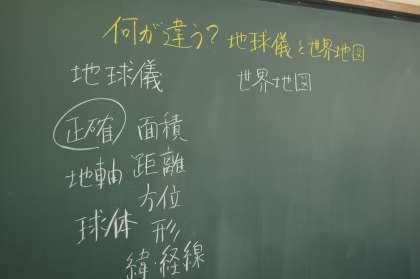 何が違う? 地球儀と世界地図
地球儀
世界地図
正確 面積
地軸 距離
方位
球体 形
緯・経線